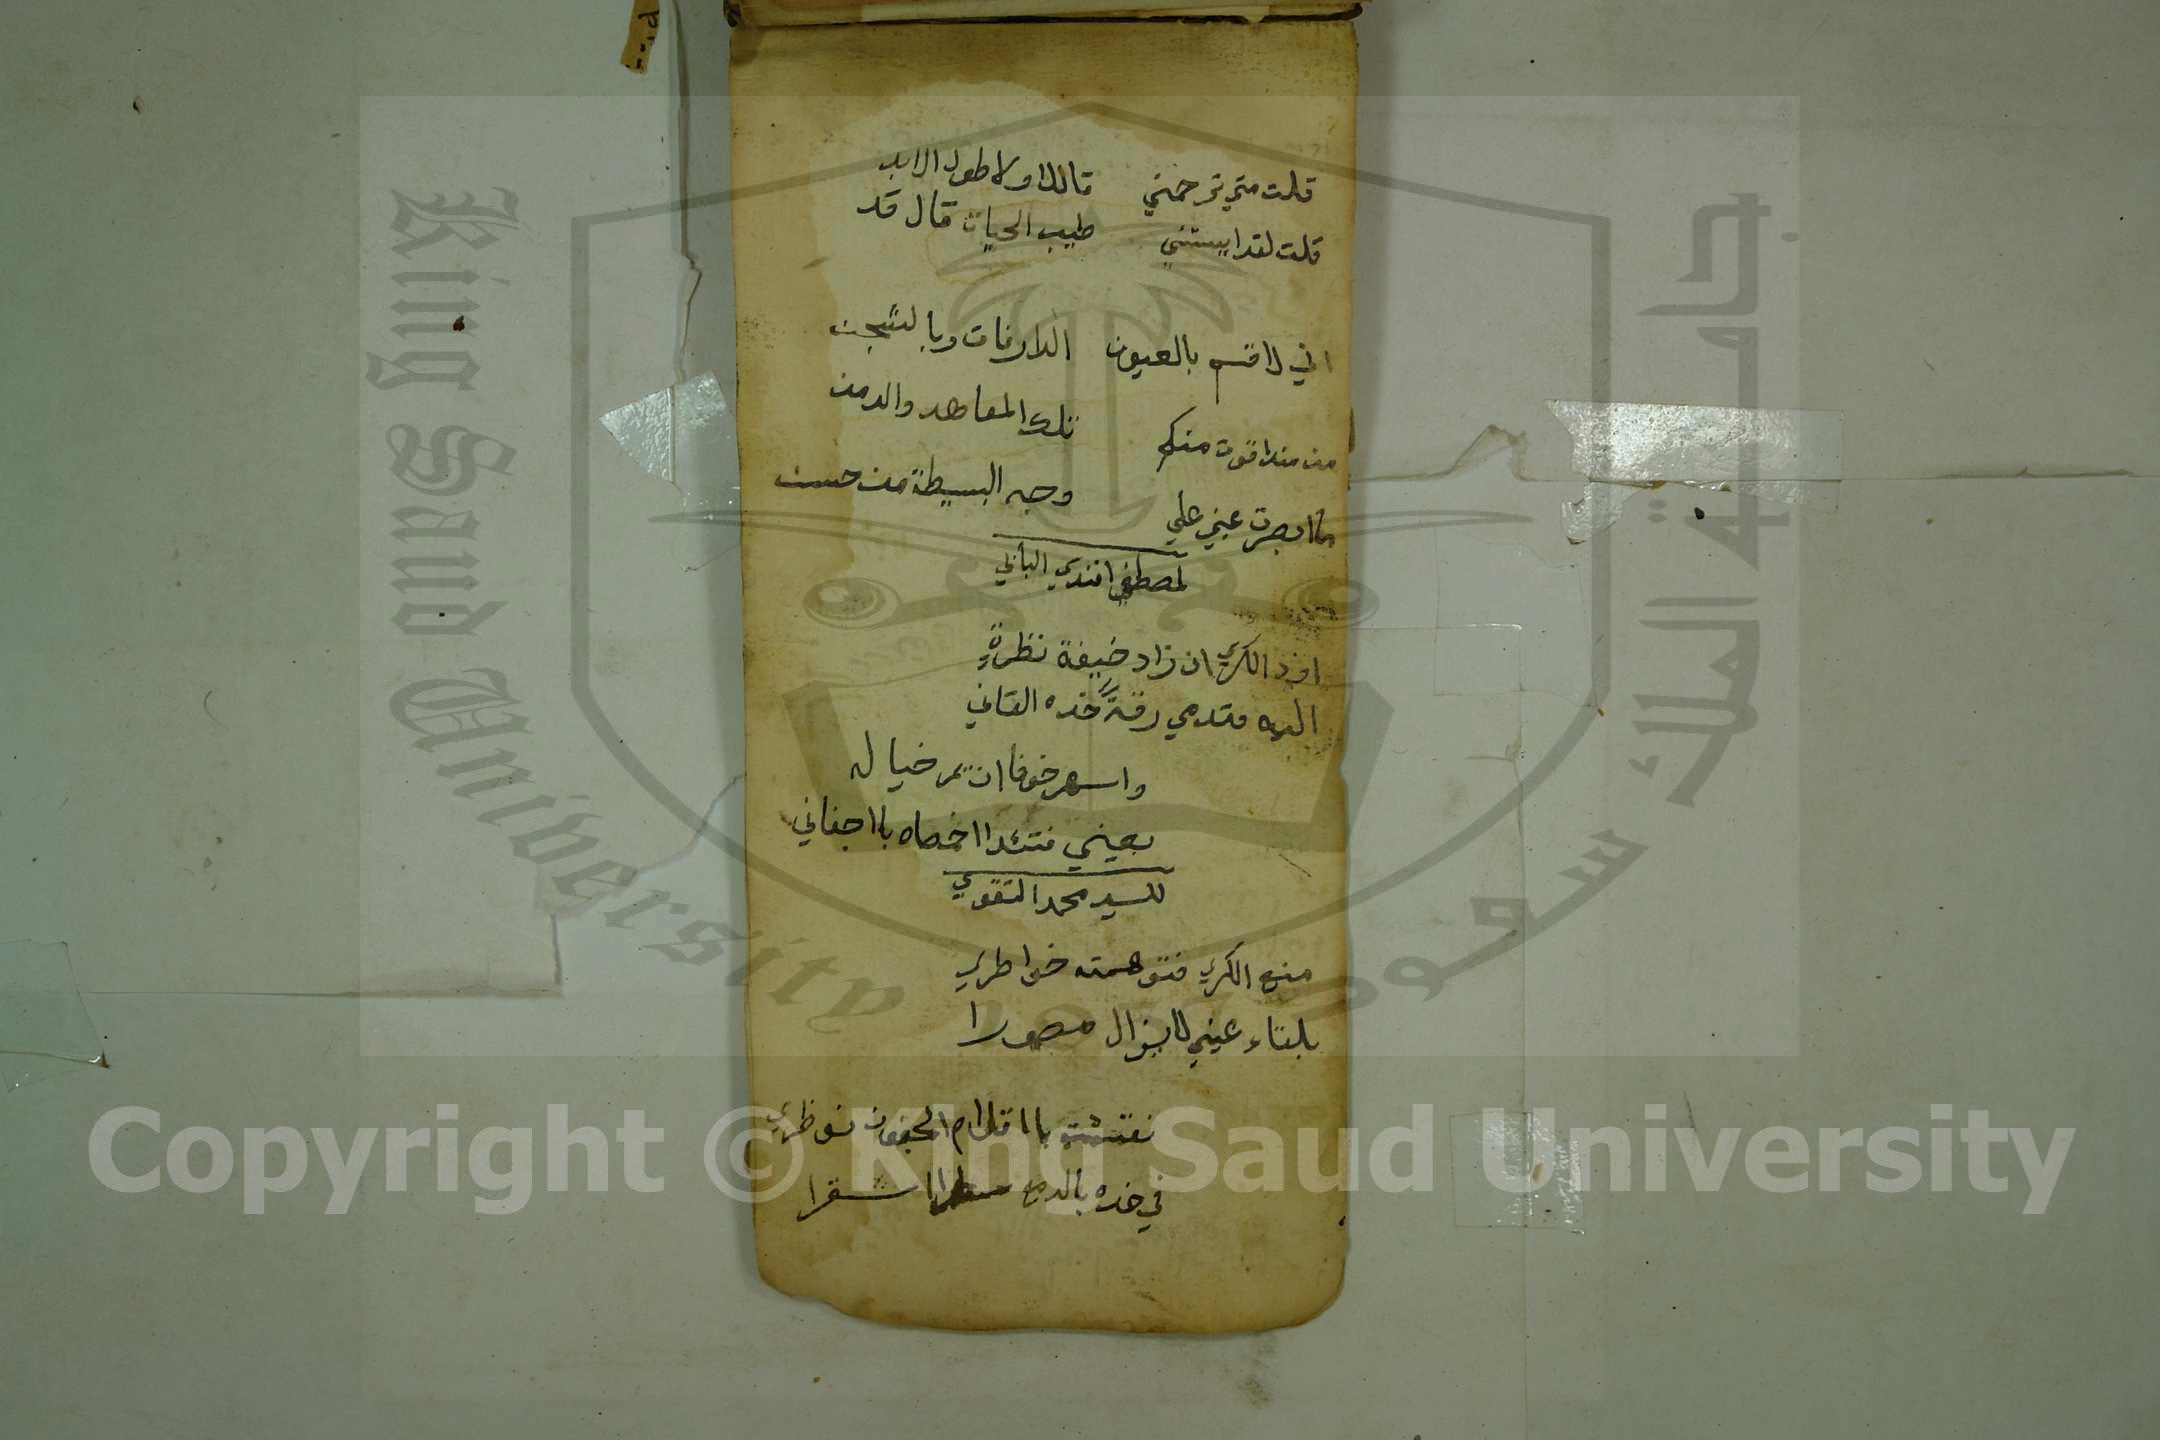 قلت متي ترحمني قال لا ولا طول الابد
قلت لقد ايستني طيب الحيات قال قد
اني لاقسم بالعيون الذارفات وبالشجن
من منذ اقوت منكم تلك المعاهد والدمن
ما ابصرت عيني علي وجه البسيطة من حسن
لمصطفي افندي البابي
اذود الكري ان زاد خيفة نظرة
اليه فتدمي رقة خده القاني
واسهر خوفا ان يمر خياله
بعيني فتندا اخمصاه باجفاني
للسيد محمد التقوي
منع الكري فتوهمته خواطري
بلقاء عيني لا يزال مصورا
نقشت باقلام الجفون نواظري
في خده بالدمع سطرا اشقرا
King Saud University 1957
جامعة الملك سعود
Copyright © King Saud University